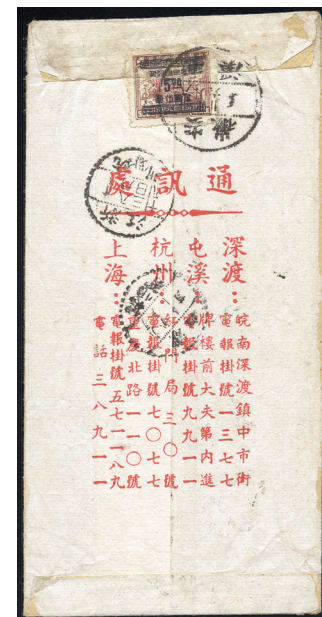 通訊處
深渡：
皖南深渡鎮中市街
電報掛號一三七七
屯溪：
牌樓前大夫第內進
電報掛號九九一一
杭州：
門局三〇號
電報掛號七〇七七
上海：
重慶北路一一〇號
電報掛號五七一一八九
電話三八九一一
安徽
浙江